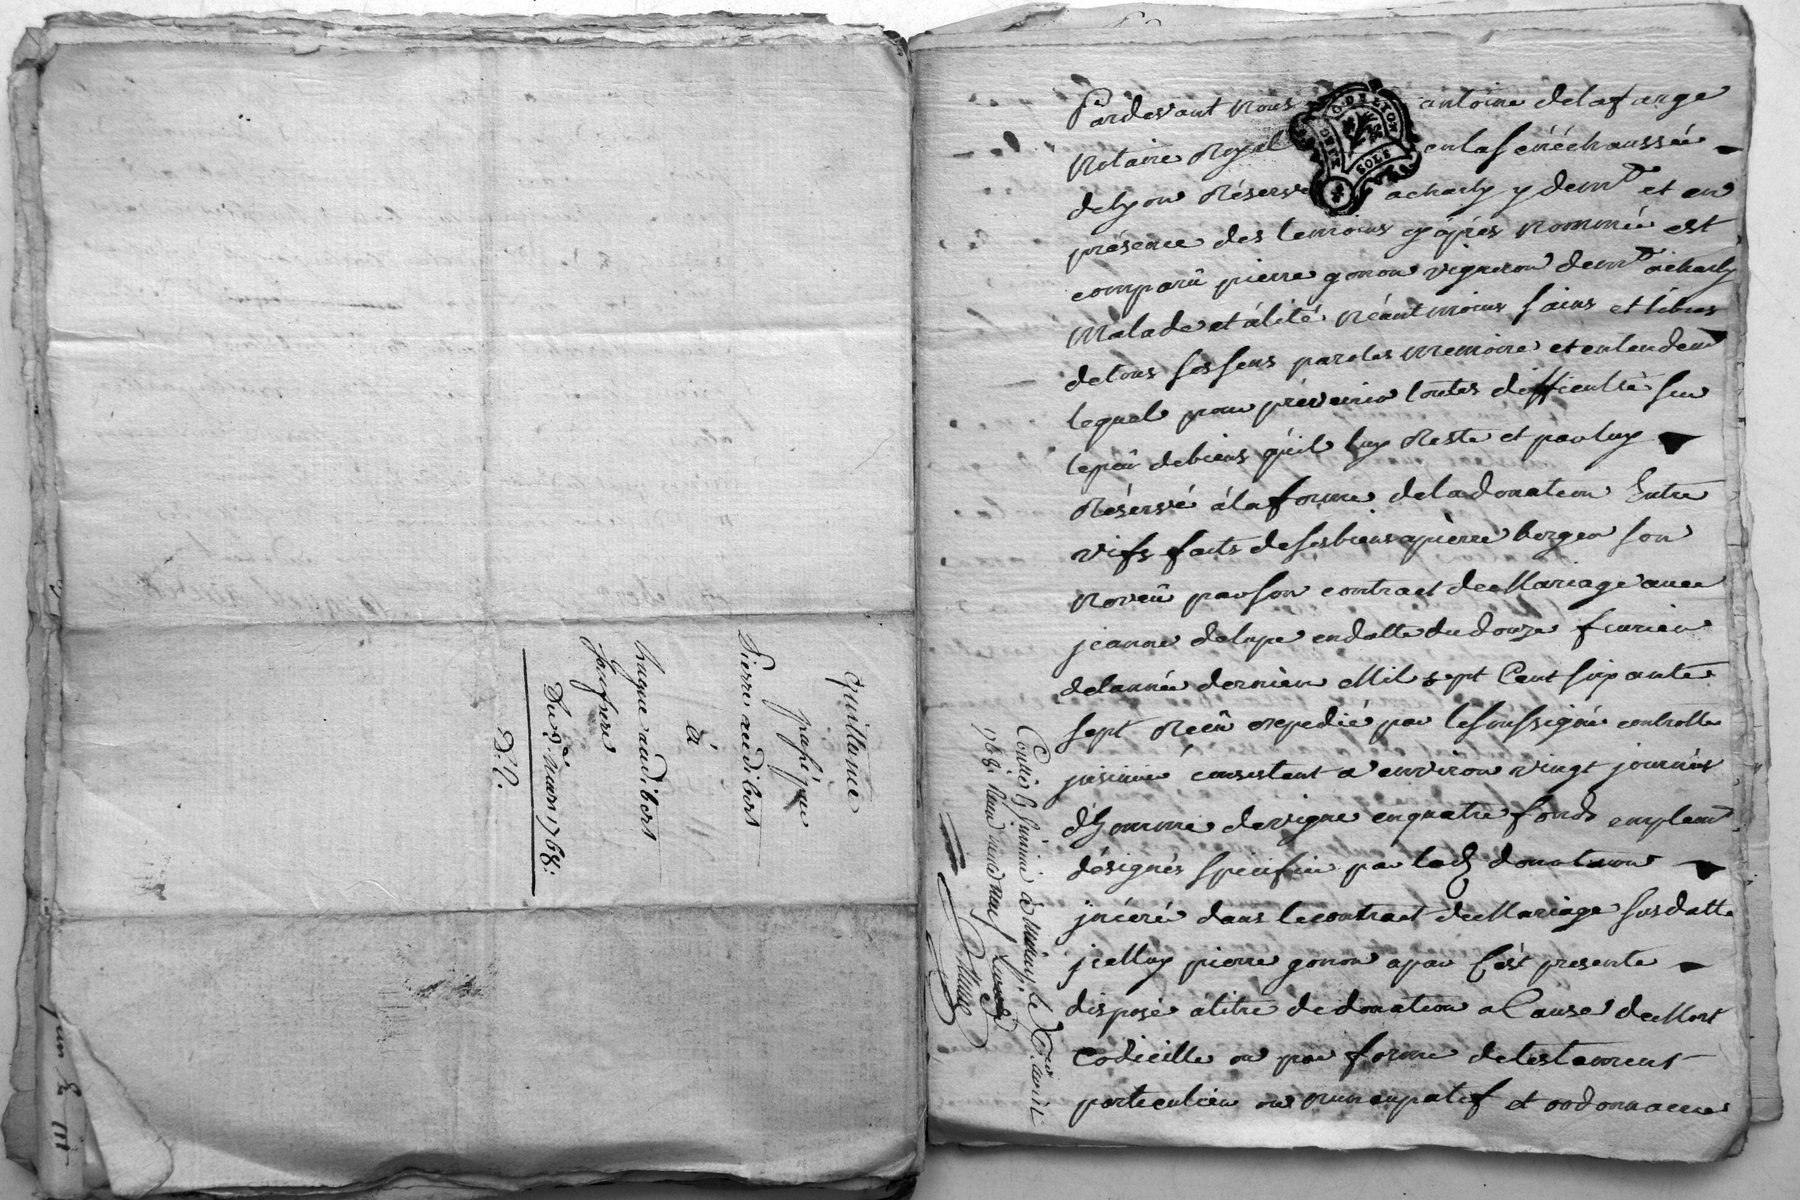 quittance
passé par
Pierre audibert
à
hugue audibert
son frere
Du 9e. mars 1768.
D. L.
Pardevant nous antoine delafarge
Notaire Royal en la sénéchaussée
O. DE LYON
DEUX
SOLS
de lyon réservé a charly y demt et en
présence des temoins cy apres nommée est
comparû pierre gonon vigneron demt a charly
malade et alité néantmoins sains et libres
de tous ses sens paroles memoire et entendemt
lequel pour prevenir toutes difficultés sur
le peû de biens qu'il luy reste et par luy
réservé à la forme de la donation Entre
vifs faits de ses biens a pierre berger son
neveû par son contract de Mariage avec
jeanne delupe en datte du douze fevrier
de l'année dernier Mil sept Cent soixante
sept reçû expedié par le soussigné controllé
jnsinué consistent a environ vingt journées
d'homme de vigne en quatre fonds emplemt
désignés specifiés par lad donation
jnceré dans le contract de Mariage susdatte
jcelluy pierre gonon a par Cest presente
disposé a titre de donation a Cause de Mort
Codicille ou par forme de testament
particulier ou nuncupatif et ordonnance
Contlé & jnsinué à le avril
1768.